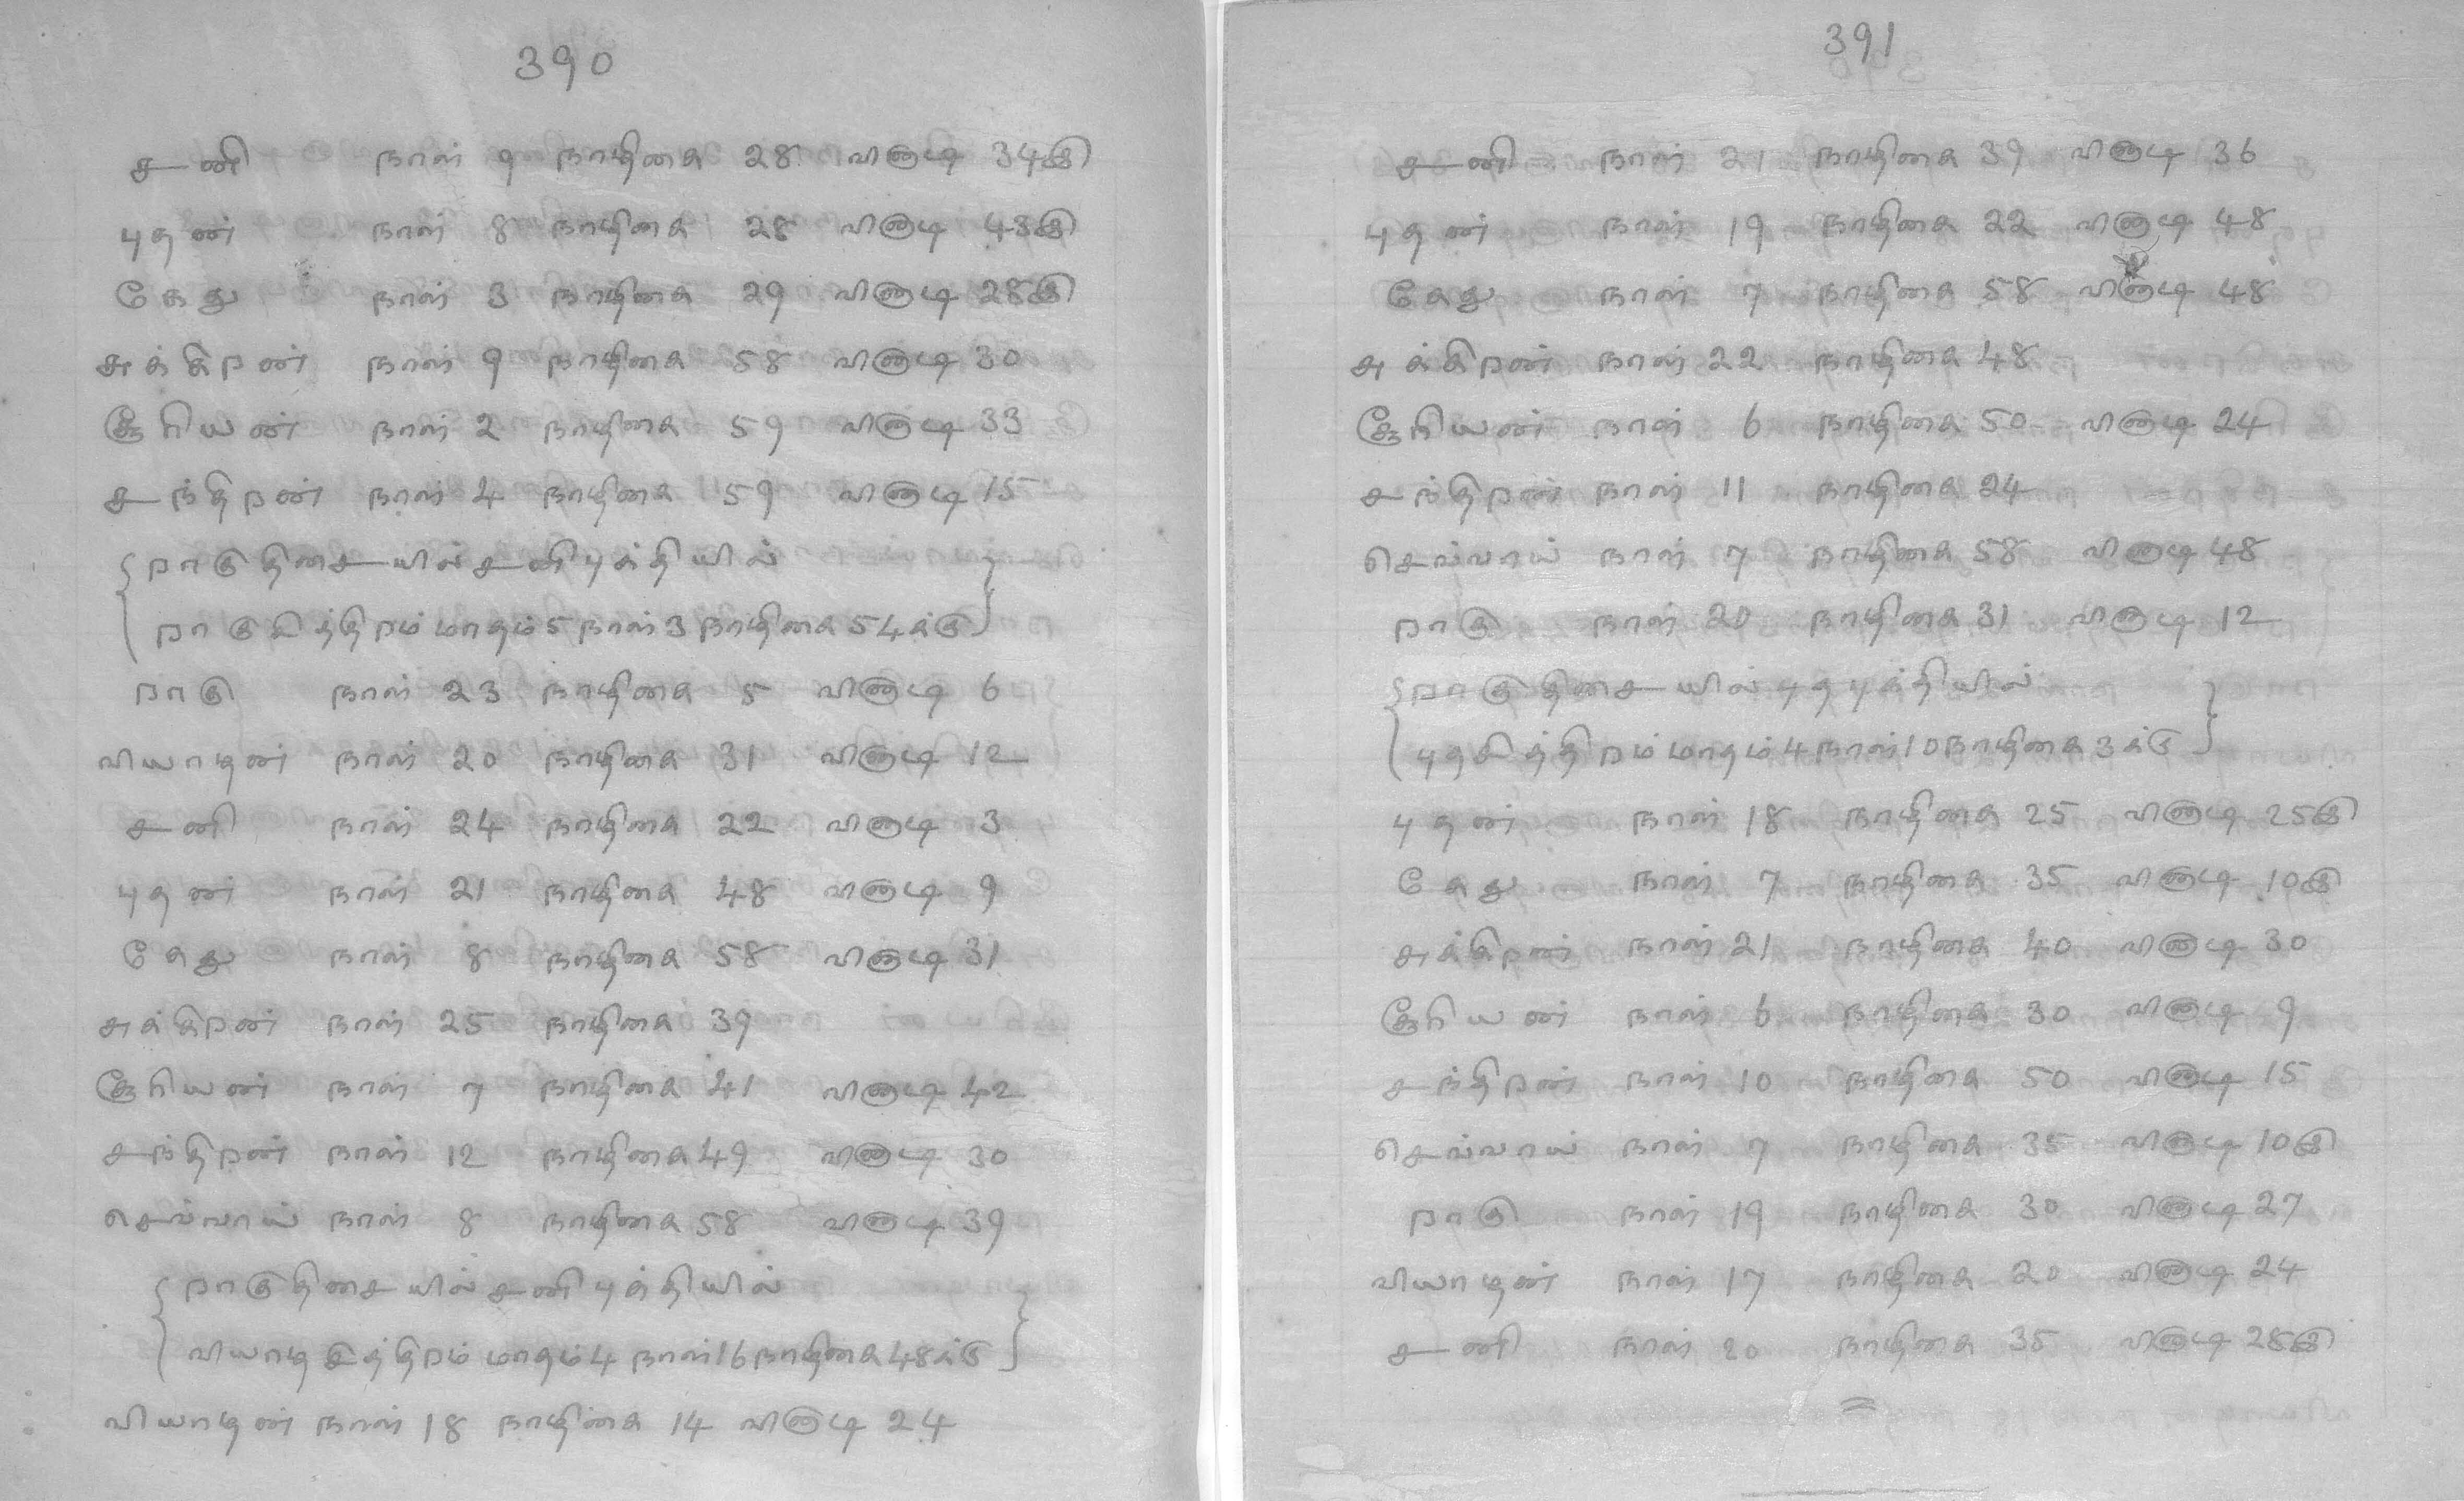 390
சனி நாள் 9 நாழிகை 28 வினாடி 34இ
புதன் நாள் 8 நாழிகை 28 வினாடி 43இ
கேது நாள் 3 நாழிகை 29 வினாடி 28இ
சுக்கிறன் நாள் 9 நாழிகை 58 வினாடி 30
சூரியன் நாள் 2 நாழிகை 59 வினாடி 33
சந்திறன் நாள் 4 நாழிகை 59 வினாடி 15
{றாகு திசையில் சனி புக்தியில்}
{றாகு சித்திறம் மாதம் 5 நாள் 3 நாழிகை 54க்கு}
றாகு நாள் 23 நாழிகை 5 வினாடி 6
வியாழன் நாள் 20 நாழிகை 31 வினாடி 12
சனி நாள் 24 நாழிகை 22 வினாடி 3
புதன் நாள் 21 நாழிகை 48 வினாடி 9
கேது நாள் 8 நாழிகை 58 வினாடி 31
சுக்கிறன் நாள் 25 நாழிகை 39
சூரியன் நாள் 7 நாழிகை 41 வினாடி 42
சந்திறன் நாள் 12 நாழிகை 49 வினாடி 30
செவ்வாய் நாள் 8 நாழிகை 58 வினாடி 39
{றாகு திசையில் சனி புக்தியில்}
{வியாழ சித்திறம் மாதம் 4 நாள் 16 நாழிகை 48க்கு}
வியாழன் நாள் 18 நாழிகை 14 வினாடி 24
391
சனி நாள் 21 நாழிகை 39 வினாடி 36
புதன் நாள் 19 நாழிகை 22 வினாடி 48
கேது நாள் 7 நாழிகை 58 வினாடி 48
சுக்கிறன் நாள் 22 நாழிகை 48
சூரியன் நாள் 6 நாழிகை 50 வினாடி 24
சந்திறன் நாள் 11 நாழிகை 24
செவ்வாய் நாள் 7 நாழிகை 58 வினாடி 48
றாகு நாள் 20 நாழிகை 31 வினாடி 12
{றாகு திசையில் புத புக்தியில்}
{புத சித்திறம் மாதம் 4 நாள் 10 நாழிகை 3க்கு}
புதன் நாள் 18 நாழிகை 25 வினாடி 25இ
கேது நாள் 7 நாழிகை 35 வினாடி 10இ
சுக்கிறன் நாள் 21 நாழிகை 40 வினாடி 30
சூரியன் நாள் 6 நாழிகை 30 வினாடி 9
சந்திறன் நாள் 10 நாழிகை 50 வினாடி 15
செவ்வாய் நாள் 7 நாழிகை 35 வினாடி 10இ
றாகு நாள் 19 நாழிகை 30 வினாடி 27
வியாழன் நாள் 17 நாழிகை 20 வினாடி 24
சனி நாள் 20 நாழிகை 35 வினாடி 28இ